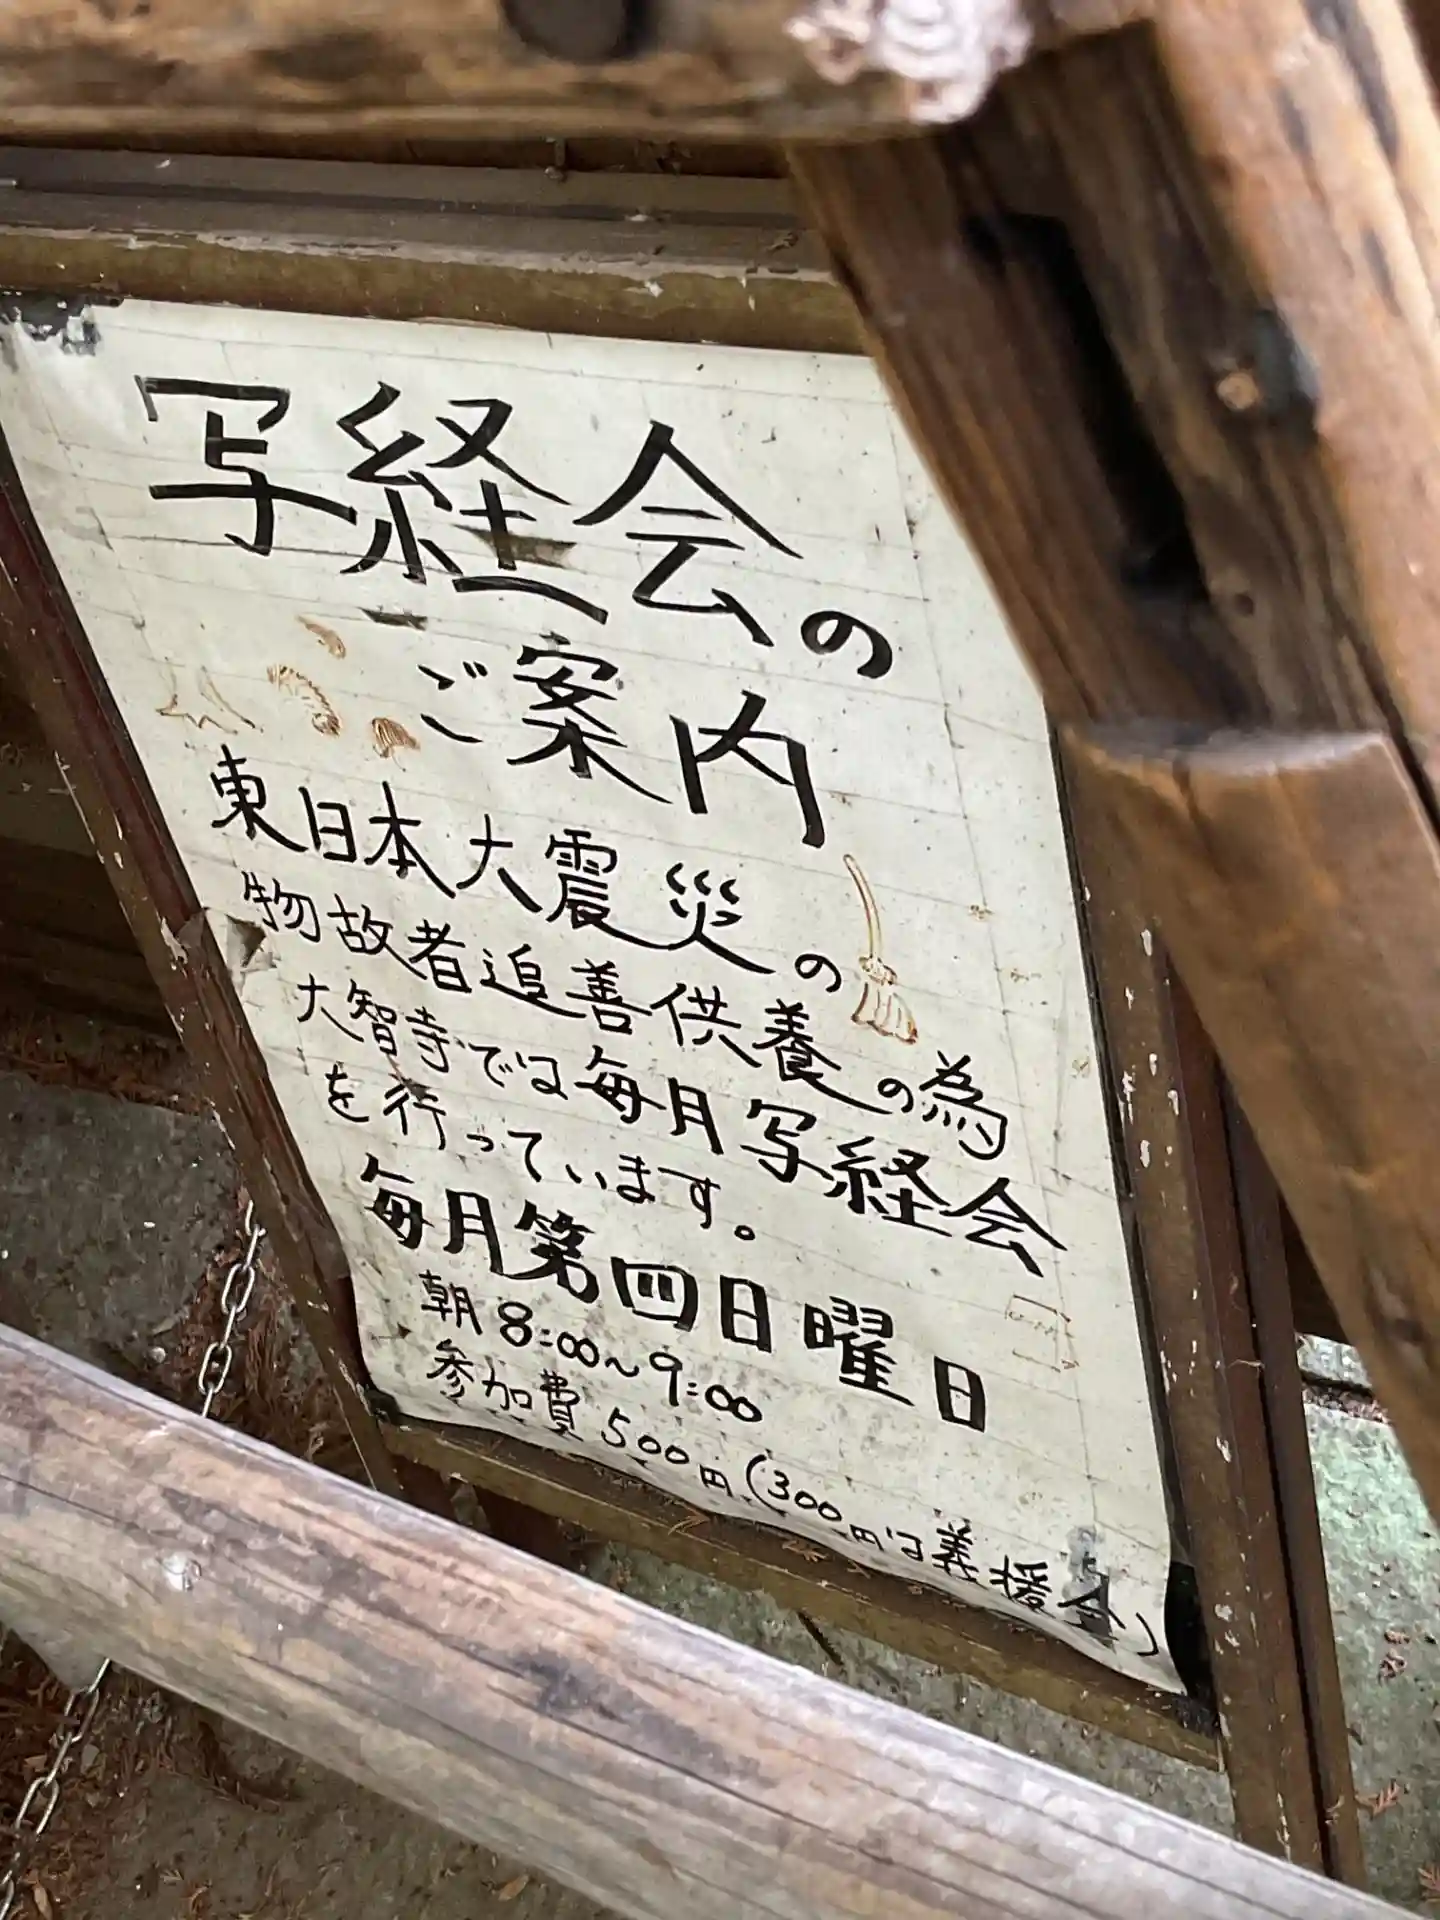 写経会の
ご案内
東日本大震災の
物故者追善供養の為
大智寺では毎月写経会
を行っています。
毎月第四日曜日
朝8:00～9:00
参加費500円(300円は義援金)